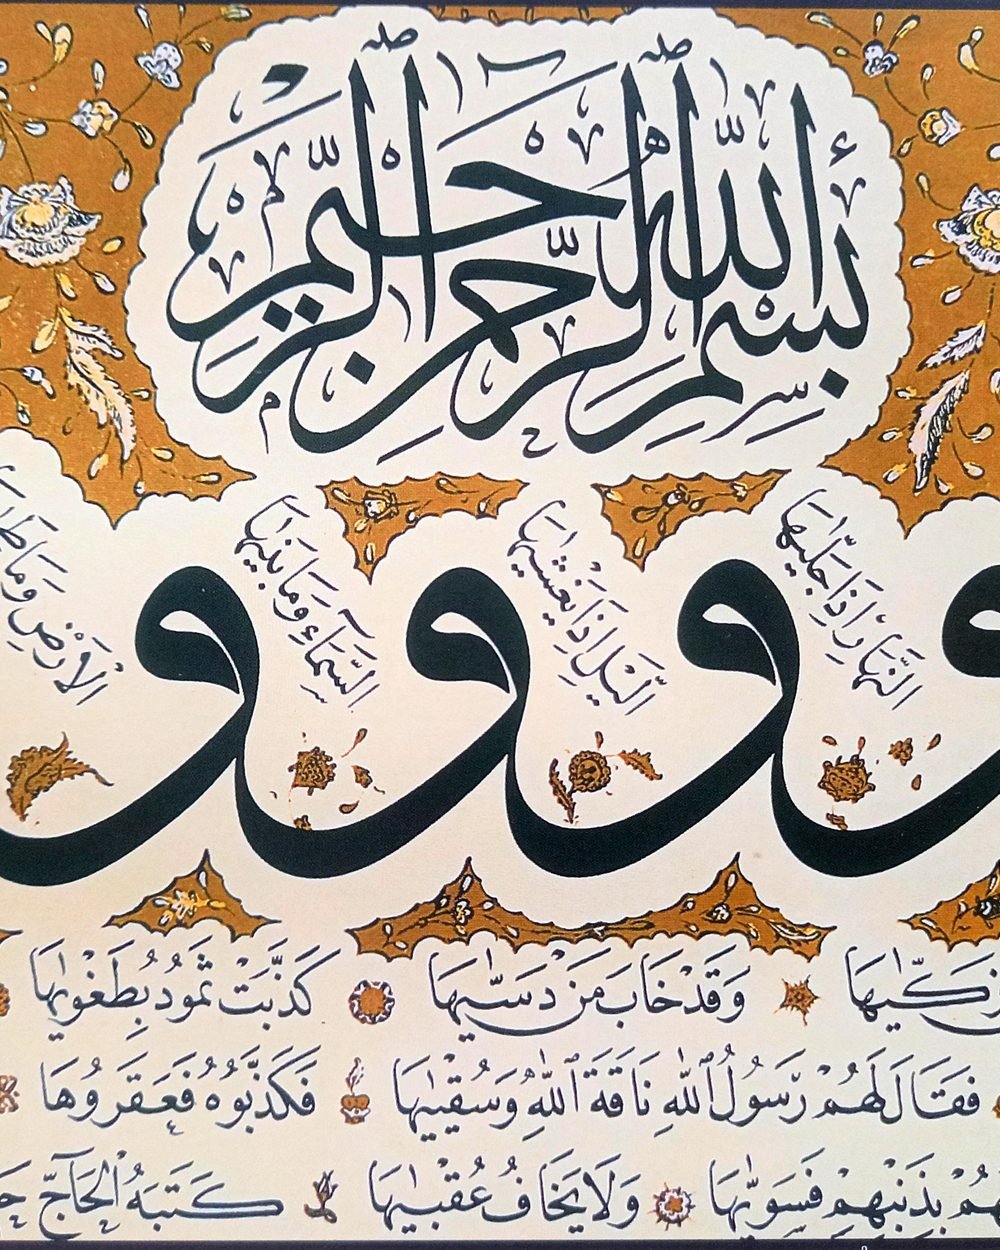 بِسْمِ ٱللَّهِ ٱلرَّحْمَٰنِ ٱلرَّحِيمِ
و ٱلنَّهَارِ إِذَا جَلَّىٰهَا
و ٱلَّيْلِ إِذَا يَغْشَىٰهَا
و ٱلسَّمَآءِ وَمَا بَنَىٰهَا
و ٱلْأَرْضِ وَمَا
زَكَّىٰهَا وَقَدْ خَابَ مَنْ دَسَّىٰهَا كَذَّبَتْ ثَمُودُ بِطَغْوَىٰهَا
فَقَالَ لَهُمْ رَسُولُ ٱللَّهِ نَاقَةَ ٱللَّهِ وَسُقْيَٰهَا فَكَذَّبُوهُ فَعَقَرُوهَا
بِذَنْبِهِمْ فَسَوَّىٰهَا وَلَا يَخَافُ عُقْبَٰهَا كَتَبَهُ ٱلْحَاجّ